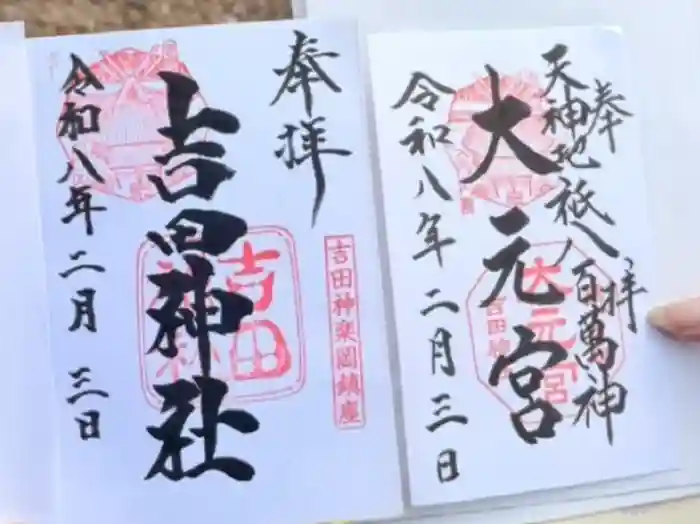 奉拝
吉田神楽岡鎮座
吉田神社
吉田
令和八年二月三日
奉拝
天神地祇八百萬神
大元宮
大元宮
令和八年二月三日